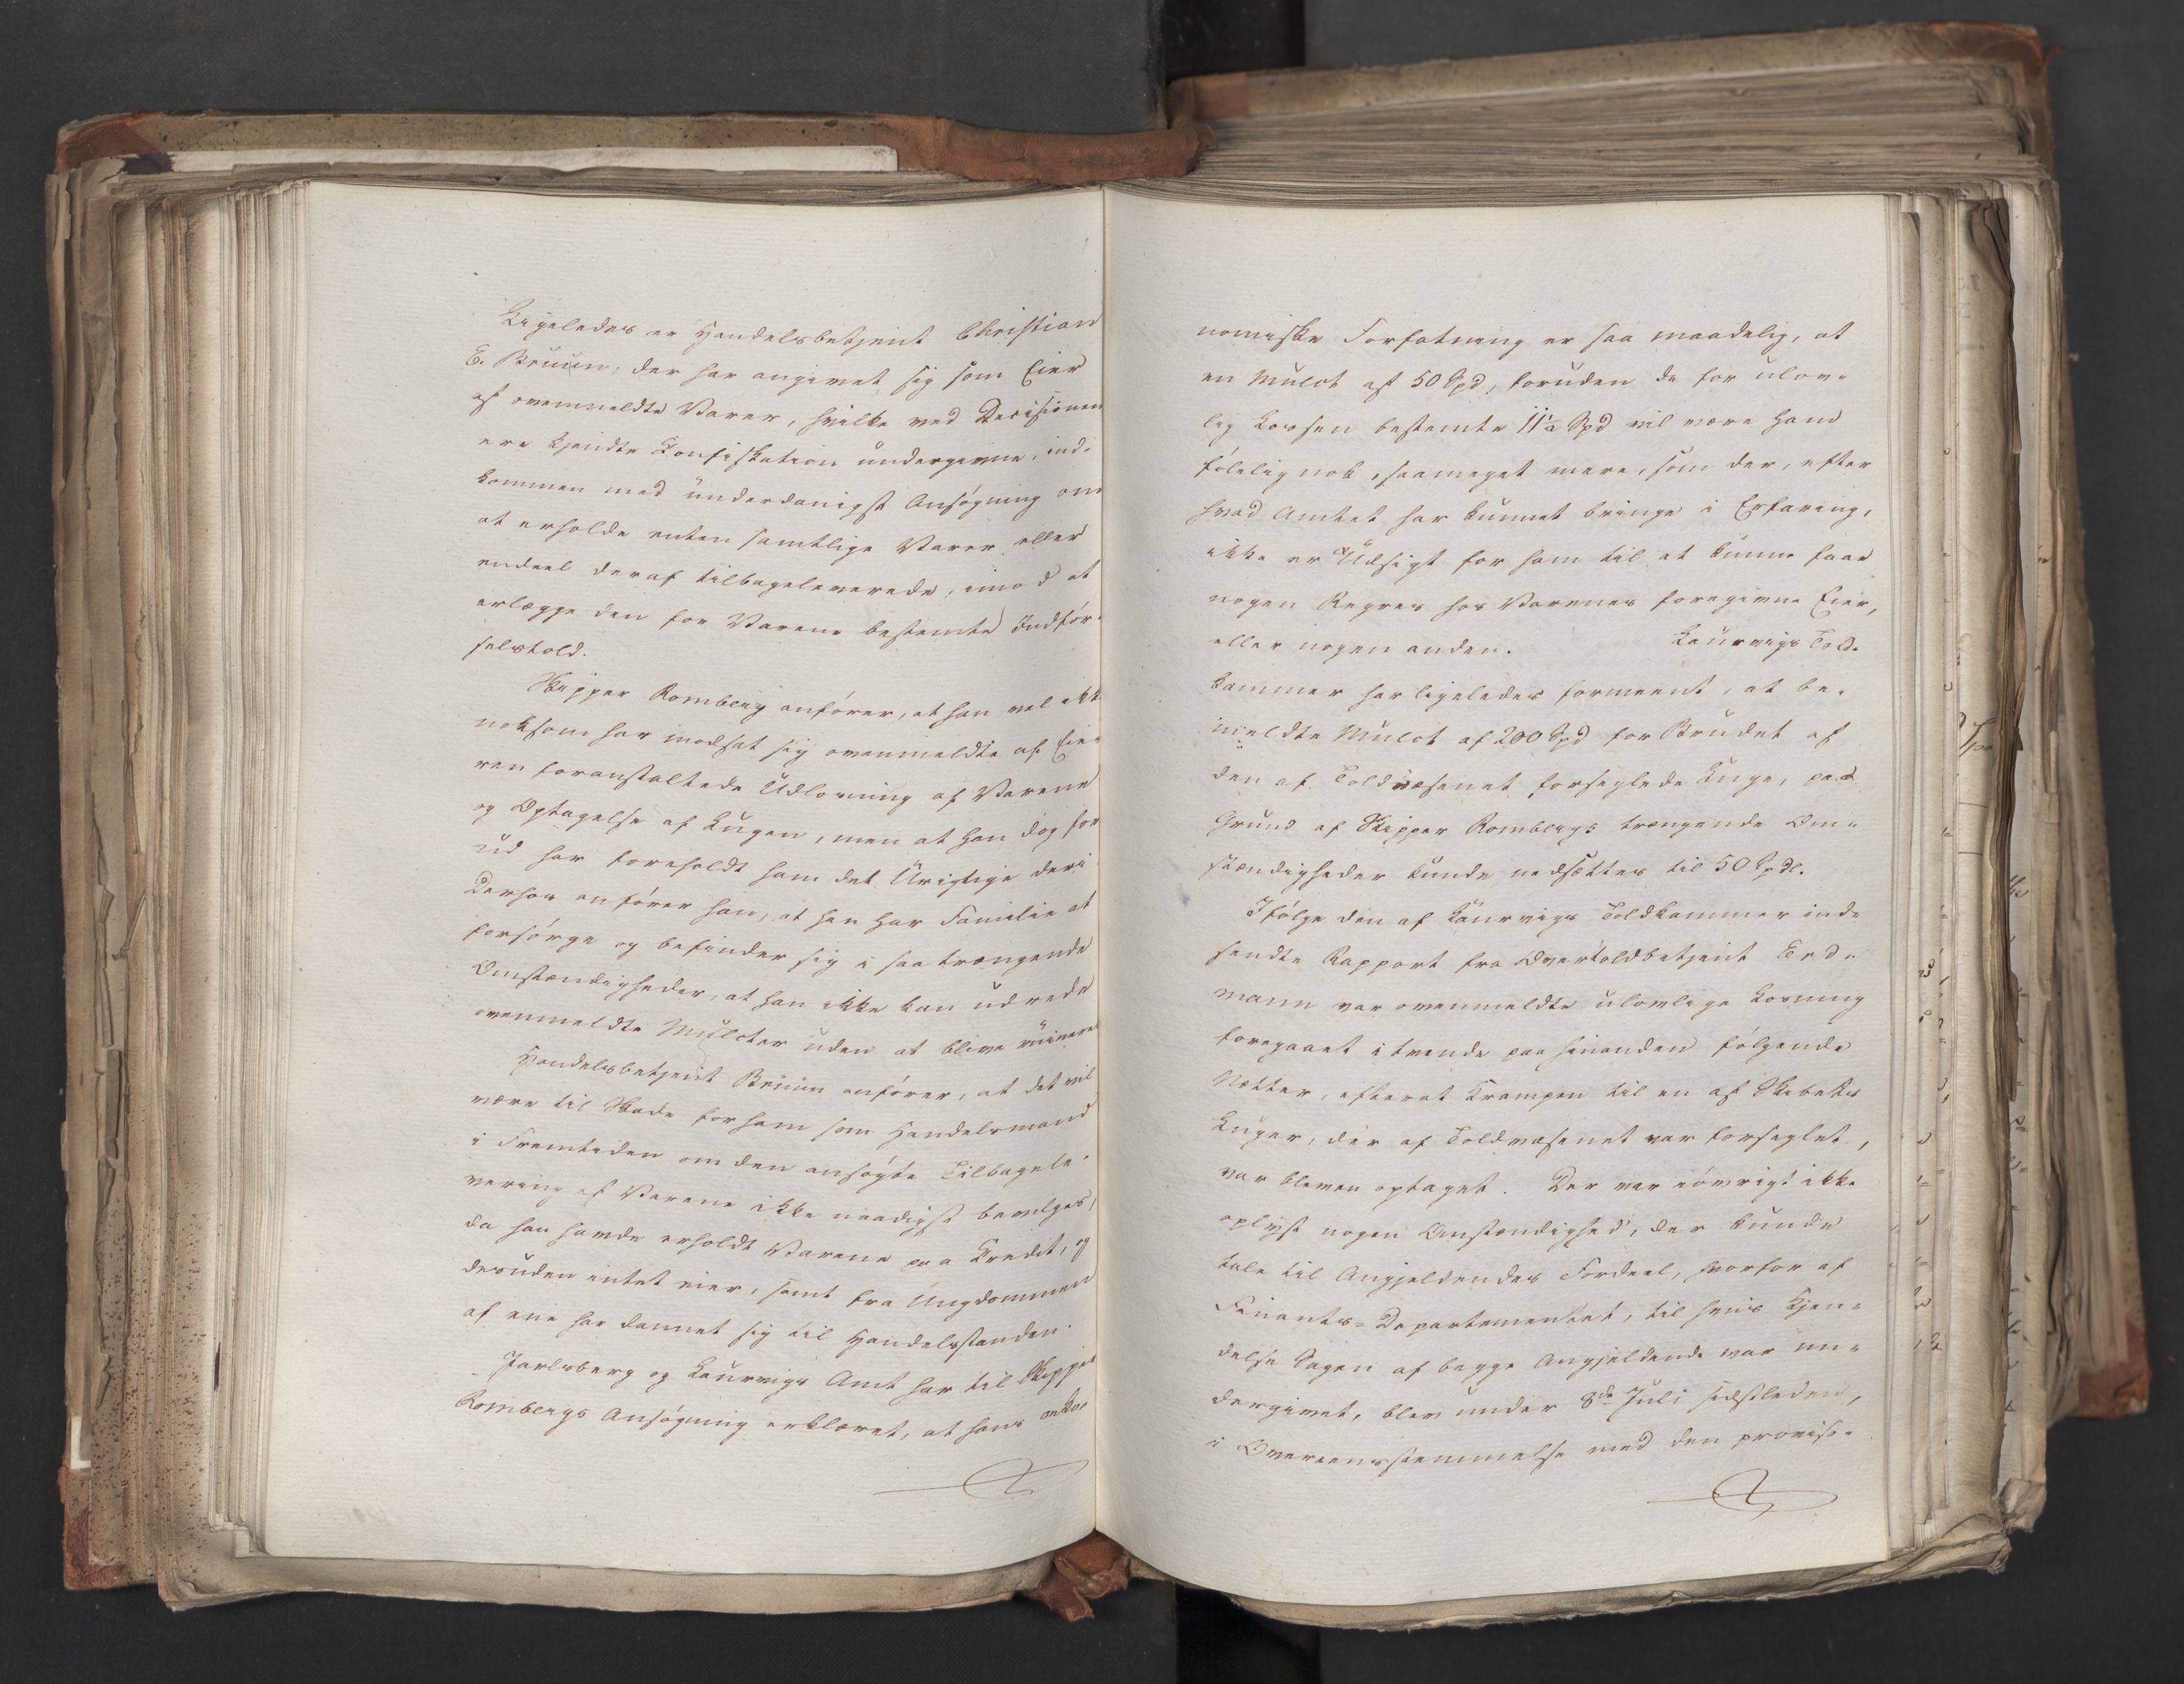 Ligeledes er Handelsbetjent Christian
E. Bruun, der har angivet sig som Eier
af ovenmeldte Varer, hvilke ved Decisionen
ere kjendte Konfiskation undergivne, ind-
kommen med underdanigst Ansøgning om
at erholde enten samtlige Varer eller
endeel deraf tilbageleverede, imod at
erlægge den for Varene bestemte Indfør-
selstold.
Skipper Romberg anfører, at han vel ikk
noksom har modsat sig ovenmeldte af Eie-
ren foranstaltede Udlosning af Varene
og Optagelse af Lugen, men at han dog for
ud har foreholdt ham det Urigtige deri
Derhos anfører han, at han har Familie at
forsørge og befinder sig i saa trængende
Omstændigheder, at han ikke kan udrede
ovenmeldte Mulcter uden at blive ruineret
Handelsbetjent Bruun anfører, at det vil
være til Skade for ham som Handelsmand
i Fremtiden om den ansøgte Tilbagele-
vering af Varene ikke naadigst bevilges,
da han havde erholdt Varene paa Kredit, og
desuden intet eier, samt fra Ungdommen
af ene har dannet sig til Handelsstanden.
Jarlsberg og Laurvigs Amt har til Skipper
Rombergs Ansøgning erklæret, at hans oeko-
nomiske Forfatning er saa maadelig, at
en Mulct af 50 Spd, foruden de for ulov-
lig Losssen bestemte 11½ Spd vil være ham
følelig nok, saameget mere, som der, efter
hvad Amtet har kunnet bringe i Erfaring,
ikke er Udsigt for ham til at kunne faae
nogen Regres hos Varenes foregivne Eier,
eller nogen anden. Laurvigs Told-
kammer har ligeledes formeent, at be-
meldte Mulct af 200 Spd for Brudet af
den af Toldvæsenet forseglede Luge, paa
Grund af Skipper Rombergs trængende Om-
stændigheder kunde nedsættes til 50 Spdl.
Ifølge den af Laurvigs Toldkammer ind-
sendte Rapport fra Overtoldbetjent Erd-
mann var ovenmeldte ulovlige Losning
foregaaet i tvende paa hinanden følgende
Nætter, efterat Krampen til en af Skibets
Luger, der af Toldvæsenet var forseglet,
var bleven optaget. Der var iøvrigt ikke
oplyst nogen Omstændighed, der kunde
tale til Angjeldendes Fordeel, hvorfor af
Finants-Departementet, til hvis Kjen-
delse Sagen af begge Angjeldende var un-
dergivet, blev under 8de Juli sidstleden,
i Overeensstemmelse med den proviso-